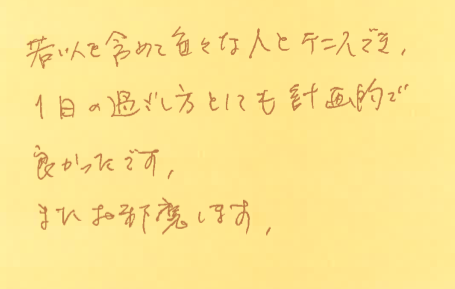 若い人を含めて色々な人とテニスでき、
1日の過ごし方としても計画的で
良かったです。
またお邪魔します。